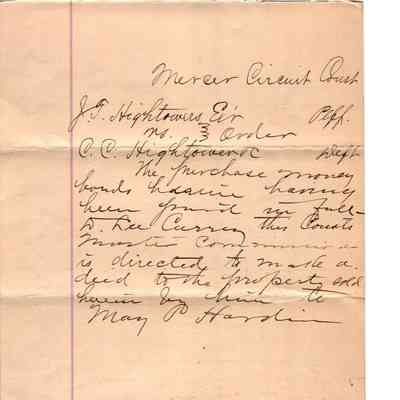 Mercer Circuit Court
J. T. Hightowers Exr Plff.
vs. } Order
C. C. Hightower &c Deft
The purchase money
bonds herein having
been paid in full
D. Lee Currey this Courts
Master Commissioner
is directed to make a
deed to the property sold
herein by him to
May P Hardin